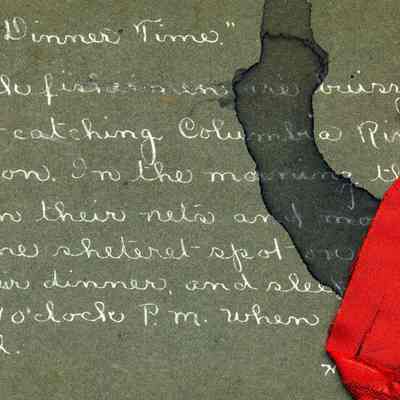 Dinner Time."
k fishermen are buis
-catching Columbia Ri
on. In the morning, th
n their nets and mo
ne sheteret spot on
ur dinner, and slee
o'clock P. M. When
d.